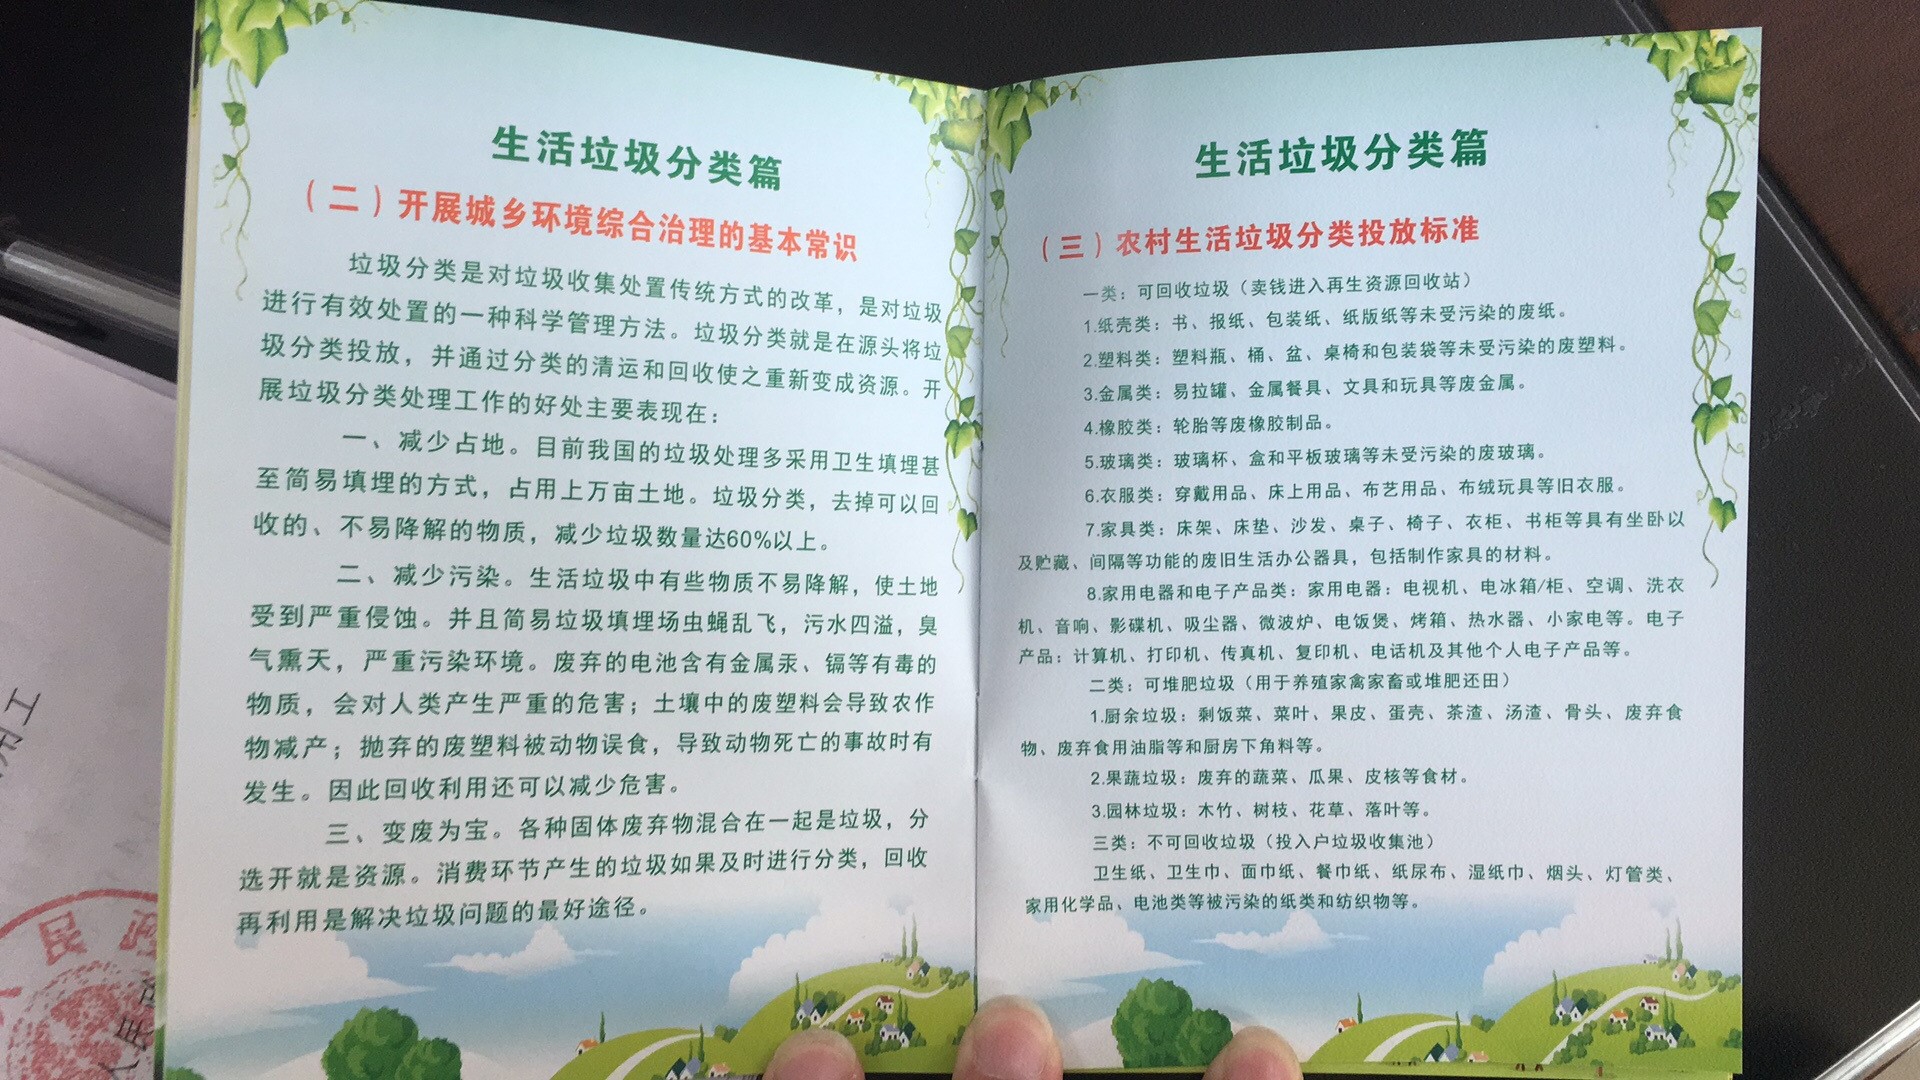 生活垃圾分类篇
（二）开展城乡环境综合治理的基本常识
垃圾分类是对垃圾收集处置传统方式的改革，是对垃圾
进行有效处置的一种科学管理方法。垃圾分类就是在源头将垃
圾分类投放，并通过分类的清运和回收使之重新变成资源。开
展垃圾分类处理工作的好处主要表现在：
一、减少占地。目前我国的垃圾处理多采用卫生填埋甚
至简易填埋的方式，占用上万亩土地。垃圾分类，去掉可以回
收的、不易降解的物质，减少垃圾数量达60%以上。
二、减少污染。生活垃圾中有些物质不易降解，使土地
受到严重侵蚀。并且简易垃圾填埋场虫蝇乱飞，污水四溢，臭
气熏天，严重污染环境。废弃的电池含有金属汞、镉等有毒的
物质，会对人类产生严重的危害；土壤中的废塑料会导致农作
物减产；抛弃的废塑料被动物误食，导致动物死亡的事故时有
发生。因此回收利用还可以减少危害。
三、变废为宝。各种固体废弃物混合在一起是垃圾，分
选开就是资源。消费环节产生的垃圾如果及时进行分类，回收
再利用是解决垃圾问题的最好途径。
生活垃圾分类篇
（三）农村生活垃圾分类投放标准
一类：可回收垃圾（卖钱进入再生资源回收站）
1.纸壳类：书、报纸、包装纸、纸版纸等未受污染的废纸。
2.塑料类：塑料瓶、桶、盆、桌椅和包装袋等未受污染的废塑料。
3.金属类：易拉罐、金属餐具、文具和玩具等废金属。
4.橡胶类：轮胎等废橡胶制品。
5.玻璃类：玻璃杯、盒和平板玻璃等未受污染的废玻璃。
6.衣服类：穿戴用品、床上用品、布艺用品、布绒玩具等旧衣服。
7.家具类：床架、床垫、沙发、桌子、椅子、衣柜、书柜等具有坐卧以
及贮藏、间隔等功能的废旧生活办公器具，包括制作家具的材料。
8.家用电器和电子产品类：家用电器：电视机、电冰箱/柜、空调、洗衣
机、音响、影碟机、吸尘器、微波炉、电饭煲、烤箱、热水器、小家电等。电子
产品：计算机、打印机、传真机、复印机、电话机及其他个人电子产品等。
二类：可堆肥垃圾（用于养殖家禽家畜或堆肥还田）
1.厨余垃圾：剩饭菜、菜叶、果皮、蛋壳、茶渣、汤渣、骨头、废弃食
物、废弃食用油脂等和厨房下角料等。
2.果蔬垃圾：废弃的蔬菜、瓜果、皮核等食材。
3.园林垃圾：木竹、树枝、花草、落叶等。
三类：不可回收垃圾（投入户垃圾收集池）
卫生纸、卫生巾、面巾纸、餐巾纸、纸尿布、湿纸巾、烟头、灯管类、
家用化学品、电池类等被污染的纸类和纺织物等。
用工
民